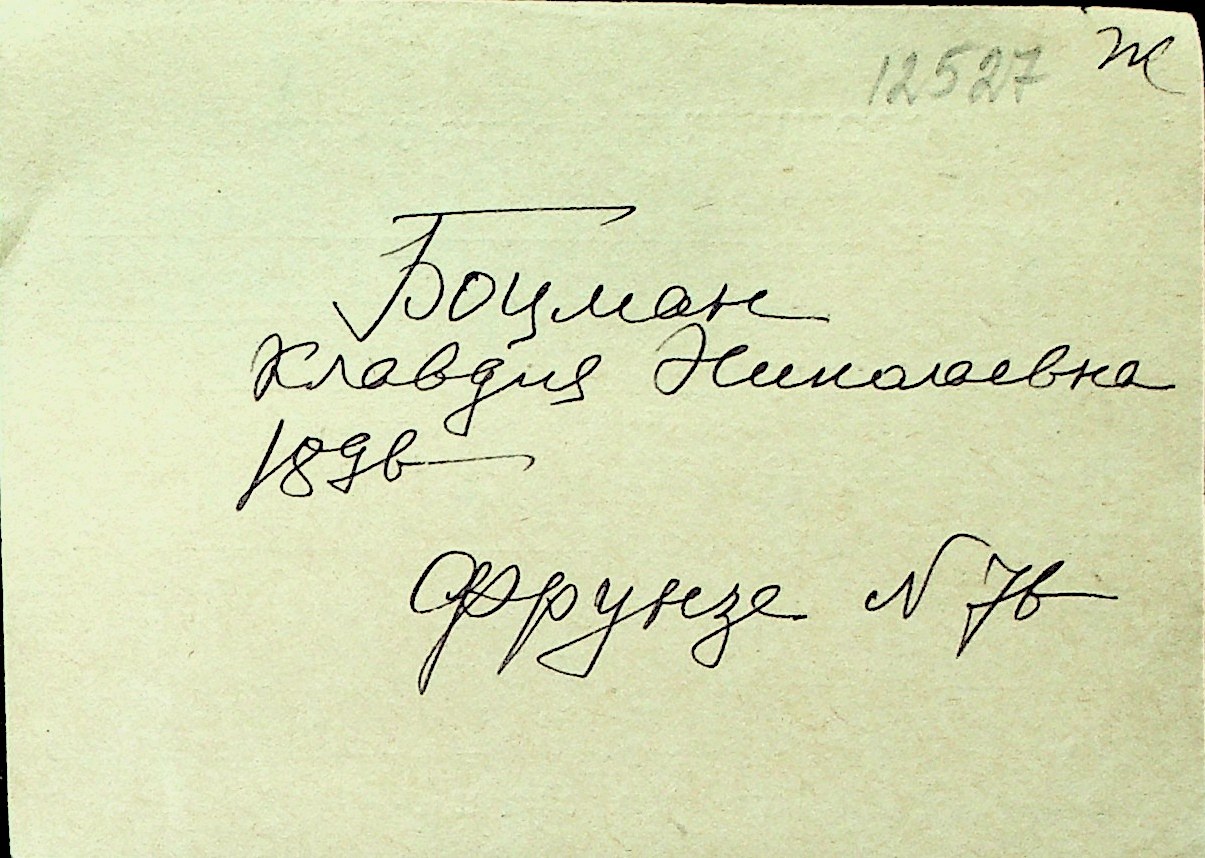 12527 Ж
Боцман
Клавдия Николаевна
1896
Фрунзе N 76